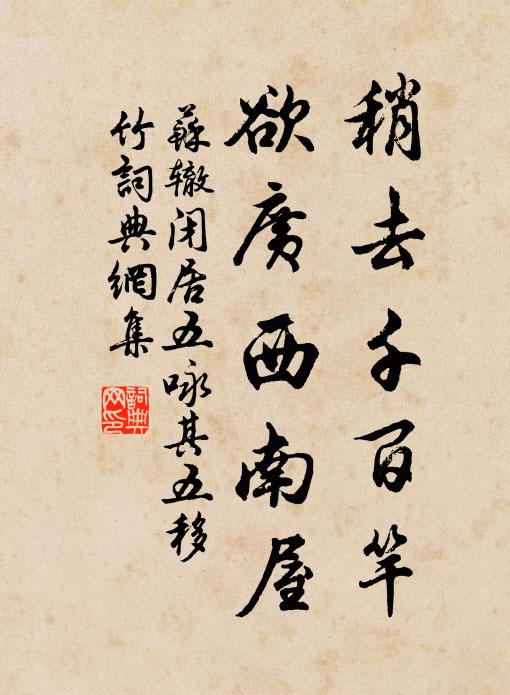 稍去千百竿
欲廣西南屋
蘇辙闭居五咏其五移
竹詞典網集
詞典
网印